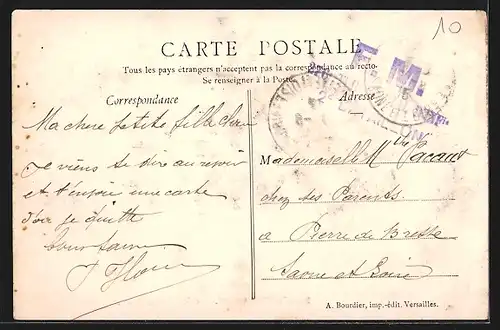 10
CARTE POSTALE
F. M.
Tous les pays étrangers n'acceptent pas la correspondance au recto.
Se renseigner à la Poste.
Correspondance
Adresse
Ma chère petite fille
Je viens te dire au revoir
et t'envoie une carte
d'où je quitte
Mademoiselle Mthe
chez ses Parents
à Pierre de Bresse
Saone et Loire
A. Bourdier, imp.-édit. Versailles.